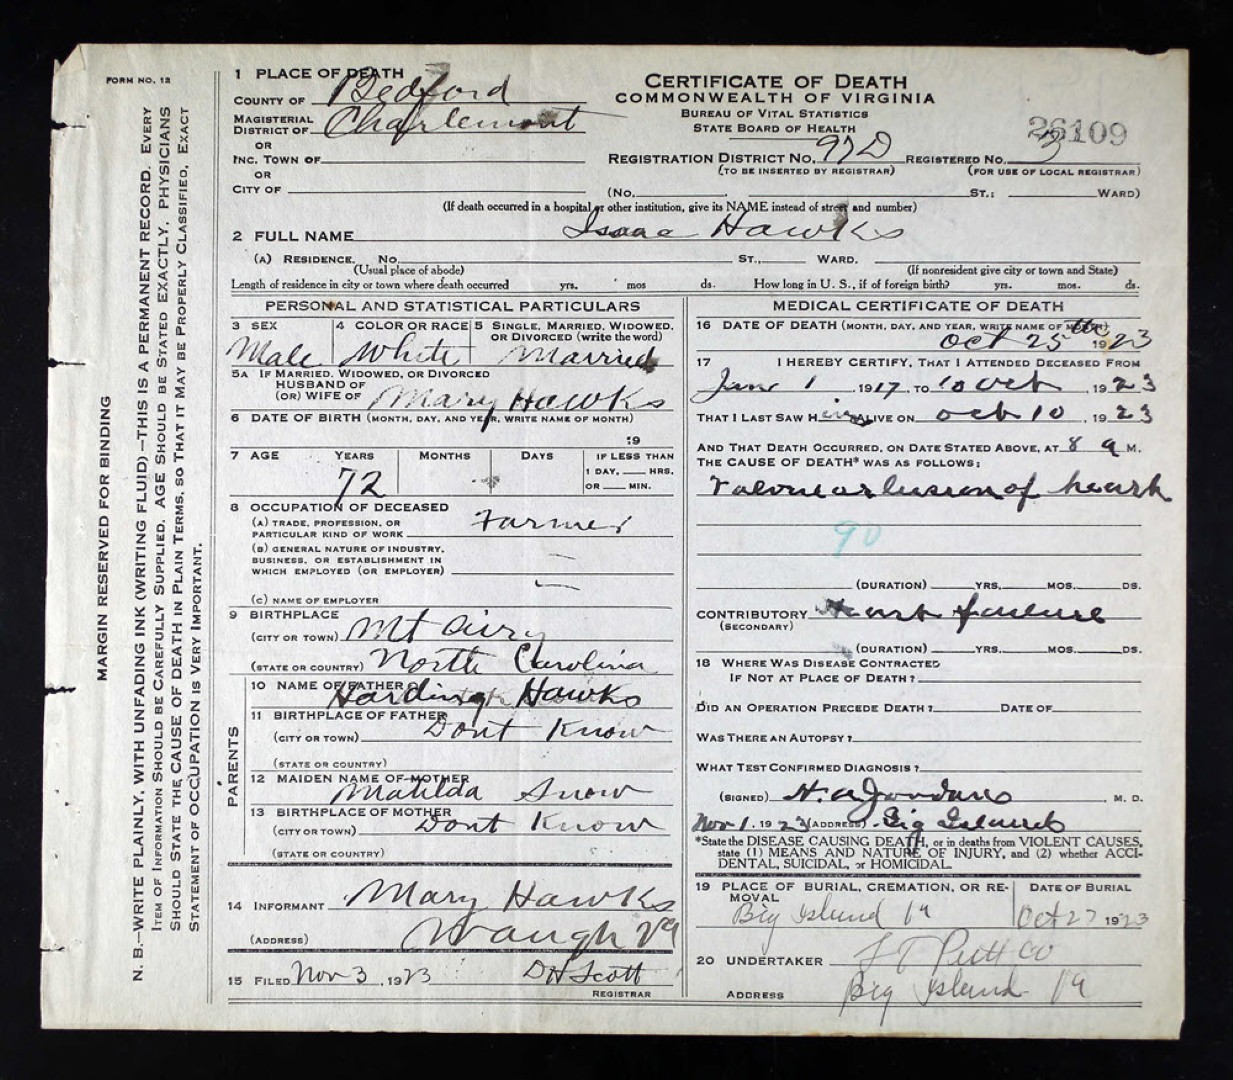 FORM NO. 12
MARGIN RESERVED FOR BINDING
N. B.—WRITE PLAINLY, WITH UNFADING INK (WRITING FLUID)—THIS IS A PERMANENT RECORD. EVERY
ITEM OF INFORMATION SHOULD BE CAREFULLY SUPPLIED. AGE SHOULD BE STATED EXACTLY. PHYSICIANS
SHOULD STATE THE CAUSE OF DEATH IN PLAIN TERMS, SO THAT IT MAY BE PROPERLY CLASSIFIED. EXACT
STATEMENT OF OCCUPATION IS VERY IMPORTANT.
1 PLACE OF DEATH
COUNTY OF Bedford
MAGISTERIAL
DISTRICT OF Charlemont
OR
INC. TOWN OF
OR
CITY OF
CERTIFICATE OF DEATH
COMMONWEALTH OF VIRGINIA
BUREAU OF VITAL STATISTICS
STATE BOARD OF HEALTH
26109
REGISTRATION DISTRICT NO. 97D REGISTERED NO. 3
(TO BE INSERTED BY REGISTRAR) (FOR USE OF LOCAL REGISTRAR)
(No. ST.: WARD)
(If death occurred in a hospital or other institution, give its NAME instead of street and number)
2 FULL NAME Isaac Hawks
(A) RESIDENCE. No. ST., WARD.
(Usual place of abode) (If nonresident give city or town and State)
Length of residence in city or town where death occurred yrs. mos ds. How long in U. S., if of foreign birth? yrs. mos. ds.
PERSONAL AND STATISTICAL PARTICULARS
3 SEX 4 COLOR OR RACE 5 SINGLE, MARRIED, WIDOWED,
OR DIVORCED (write the word)
Male White Married
5A IF MARRIED, WIDOWED, OR DIVORCED
HUSBAND OF
(OR) WIFE OF Mary Hawks
6 DATE OF BIRTH (MONTH, DAY, AND YEAR, WRITE NAME OF MONTH)
19
7 AGE YEARS MONTHS DAYS IF LESS THAN
1 DAY, HRS.
OR MIN.
72
8 OCCUPATION OF DECEASED
(A) TRADE, PROFESSION, OR
PARTICULAR KIND OF WORK Farmer
(B) GENERAL NATURE OF INDUSTRY,
BUSINESS, OR ESTABLISHMENT IN
WHICH EMPLOYED (OR EMPLOYER)
(C) NAME OF EMPLOYER
9 BIRTHPLACE
(CITY OR TOWN) Mt Airy
(STATE OR COUNTRY) North Carolina
PARENTS
10 NAME OF FATHER Hardingh Hawks
11 BIRTHPLACE OF FATHER
(CITY OR TOWN) Dont Know
(STATE OR COUNTRY)
12 MAIDEN NAME OF MOTHER
Matilda Snow
13 BIRTHPLACE OF MOTHER
(CITY OR TOWN) Dont Know
(STATE OR COUNTRY)
14 INFORMANT Mary Hawks
(ADDRESS) Waugh Va
15 FILED Nov 3, 1923 D H Scott
REGISTRAR
MEDICAL CERTIFICATE OF DEATH
16 DATE OF DEATH (MONTH, DAY, AND YEAR, WRITE NAME OF MONTH)
Oct 25th 1923
17 I HEREBY CERTIFY, THAT I ATTENDED DECEASED FROM
June 1, 1917, TO 10 Oct, 1923
THAT I LAST SAW H im ALIVE ON Oct 10, 1923
AND THAT DEATH OCCURRED, ON DATE STATED ABOVE, AT 8 a M.
THE CAUSE OF DEATH* WAS AS FOLLOWS:
of heart
90
(DURATION) YRS. MOS. DS.
CONTRIBUTORY Heart failure
(SECONDARY)
(DURATION) YRS. MOS. DS.
18 WHERE WAS DISEASE CONTRACTED
IF NOT AT PLACE OF DEATH?
DID AN OPERATION PRECEDE DEATH? DATE OF
WAS THERE AN AUTOPSY?
WHAT TEST CONFIRMED DIAGNOSIS?
(SIGNED) H. A. M. D.
Nov 1, 1923 (ADDRESS) Big Island
*State the DISEASE CAUSING DEATH, or in deaths from VIOLENT CAUSES,
state (1) MEANS AND NATURE OF INJURY, and (2) whether ACCI-
DENTAL, SUICIDAL, or HOMICIDAL.
19 PLACE OF BURIAL, CREMATION, OR RE-
MOVAL DATE OF BURIAL
Big Island Va Oct 27 1923
20 UNDERTAKER
ADDRESS Big Island Va